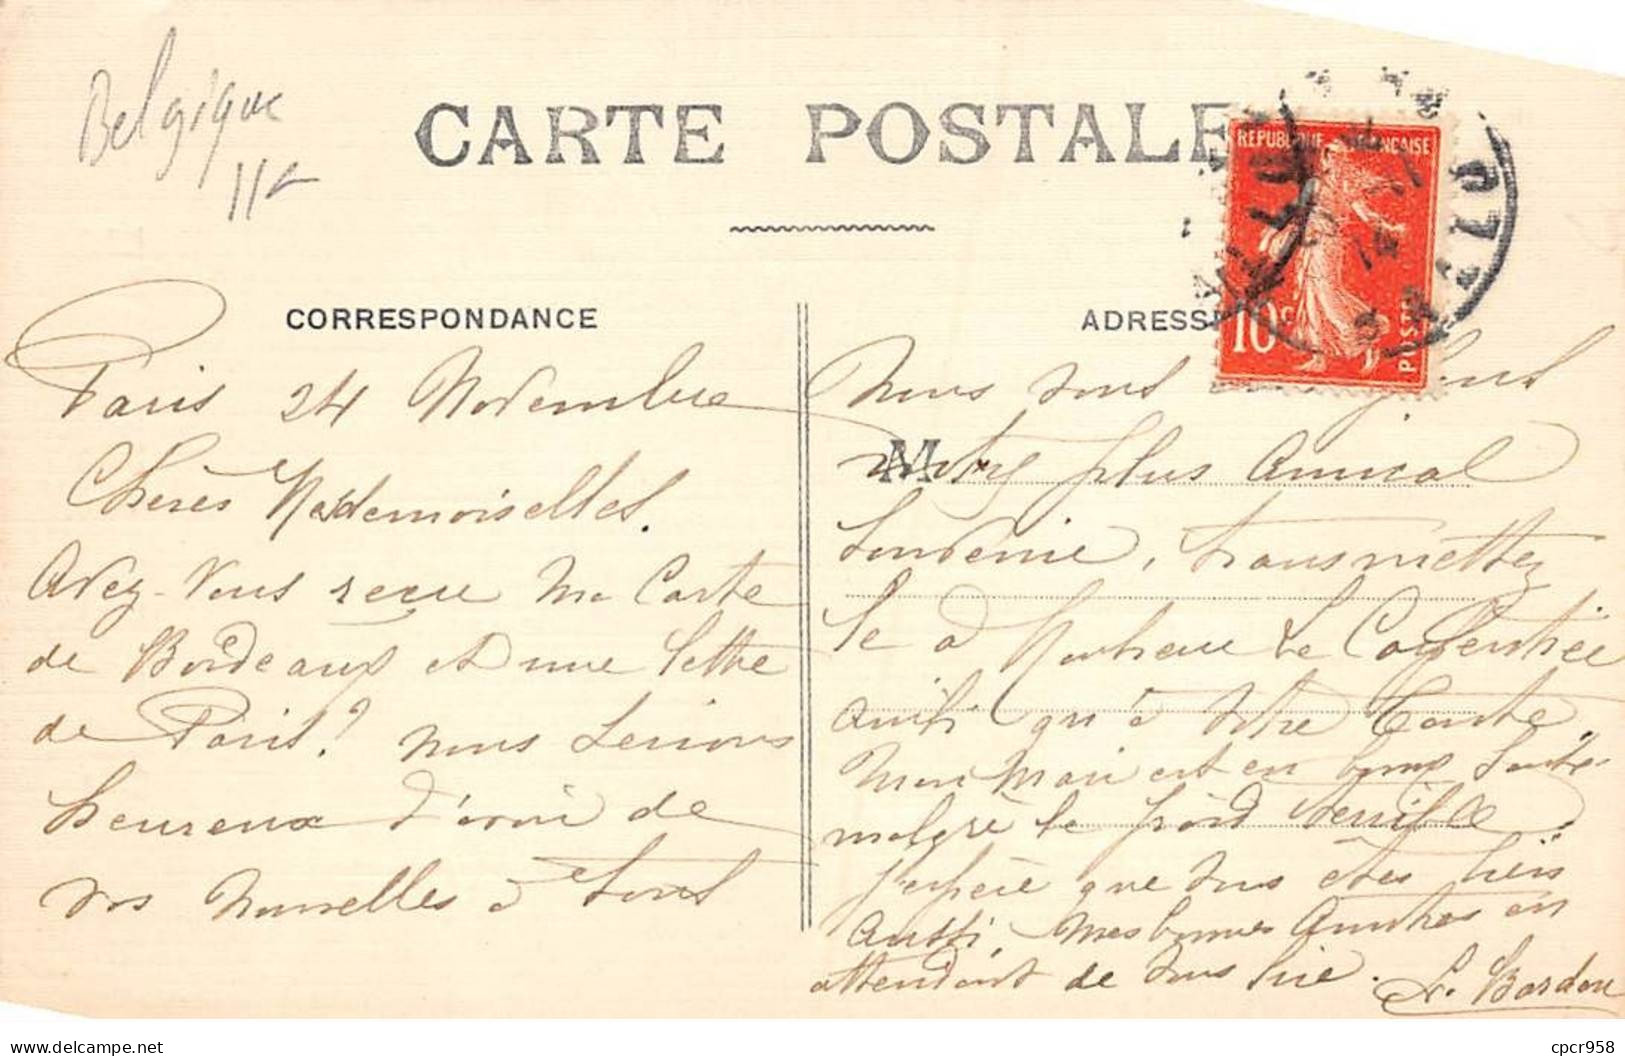 Belgique
CARTE POSTALE
REPUBLIQUE FRANÇAISE
10c POSTES
14
CORRESPONDANCE
ADRESSE
Paris 24 Novembre
Chères Mesdemoiselles.
Avez-vous reçu ma Carte
de Bordeaux et une lettre
de Paris? nous serions
heureux d'avoir de
vos nouvelles à tous
Nous vous
M
notre plus amical
Souvenir, transmettez
le à Monsieur Le Carpentier
ainsi qu'à votre tante,
Mon Mari est en bonne Santé
malgré le froid terrible,
j'espère que vous êtes bien
Aussi, Mes bonnes Amitiés en
attendant de vous lire. L. Bordou
delcampe.net
cpcr958